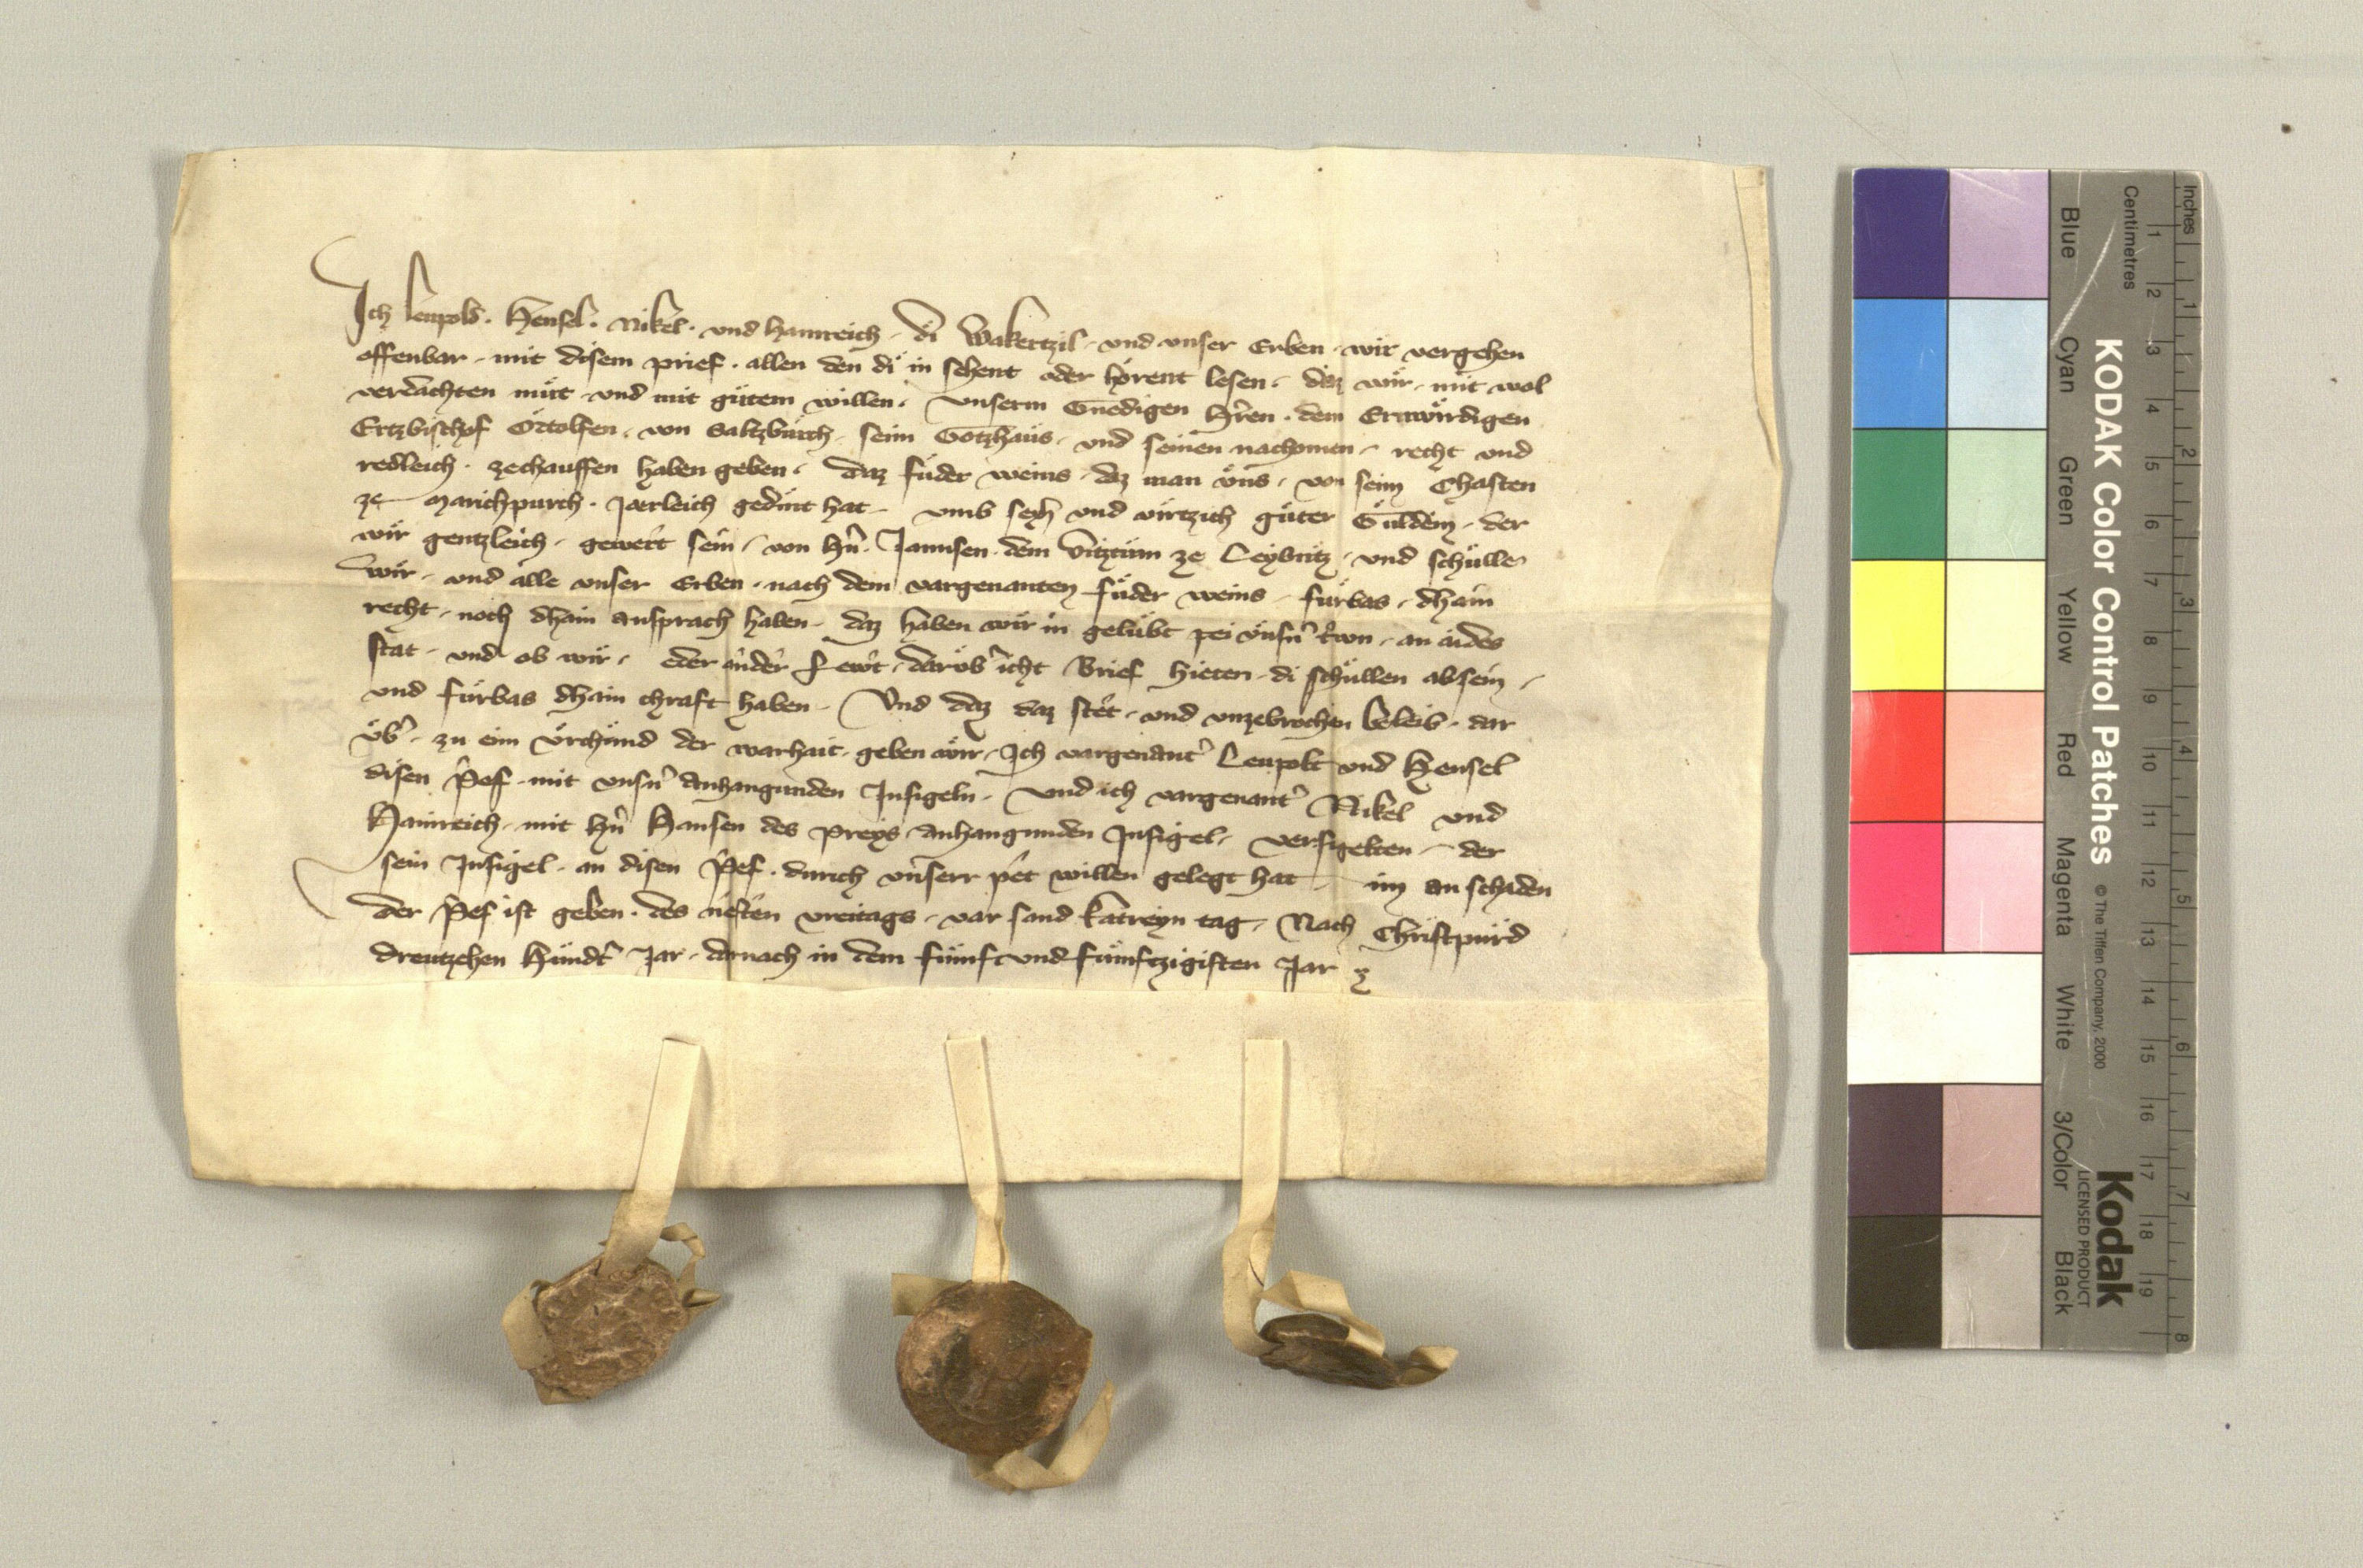 Ich Leupold. Hensel. Nikel. und Hainreich. di Wakerzil. und unser Erben. wir vergehen
offenbar. mit disem prief. allen den di in sehent oder hörent lesen. daz wir. mit wol
verdachten müt und mit gütem willen. Unserm Gnedigen Hren. dem Erwirdigen
Ertzbischof Ortolfen. von Saltzburch. seim Gotzhaus. und seinen nachomen. recht und
redleich. zechauffen haben geben. daz füder weins. daz man uns. von seim Chasten
ze Marichpurch. Jaerleich gedint hat. umb sehs und virtzich güter Güldein. der
wir gentzleich. gewert sein. von Hn. Jannsen. dem Vitztum ze Leybnitz. und schulle
wir. und alle unser Erben. nach dem vargenanten füder weins. fürbas. dhain
recht. noch dhain ansprach haben. daz haben wir in gelubt pei unsn trwn. an aides
stat. und ob wir. oder ander Lewt. darüb icht Brief hieten. di schullen ab sein.
und fürbas dhain chraft haben. Und daz daz stet. und unzebrochen beleib. dar
üb. zu eim Urchünd der warhait. geben wir. Ich vargenant Leupolt und Hensel
disen Pef. mit unsn anhangunden Insigeln. Und ich vargenant Nikel und
Hainreich. mit Hn Hansen des Preys. anhangunden Insigel. versigelten. der
sein Insigel. an disen Pef. durch unserr pet willen gelegt hat. im an schaden
der Pef ist geben. des nesten vreitags. var sand Katreyn tag. Nach Christpurd
dreutzehen Hundt Jar. darnach in dem fünf und fümftzigisten Jar
KODAK Color Control Patches
© The Tiffen Company, 2000
Kodak
LICENSED PRODUCT
Blue Cyan Green Yellow Red Magenta White 3/Color Black
Centimetres
1 2 3 4 5 6 7 8 9 10 11 12 13 14 15 16 17 18 19
Inches
1 2 3 4 5 6 7 8